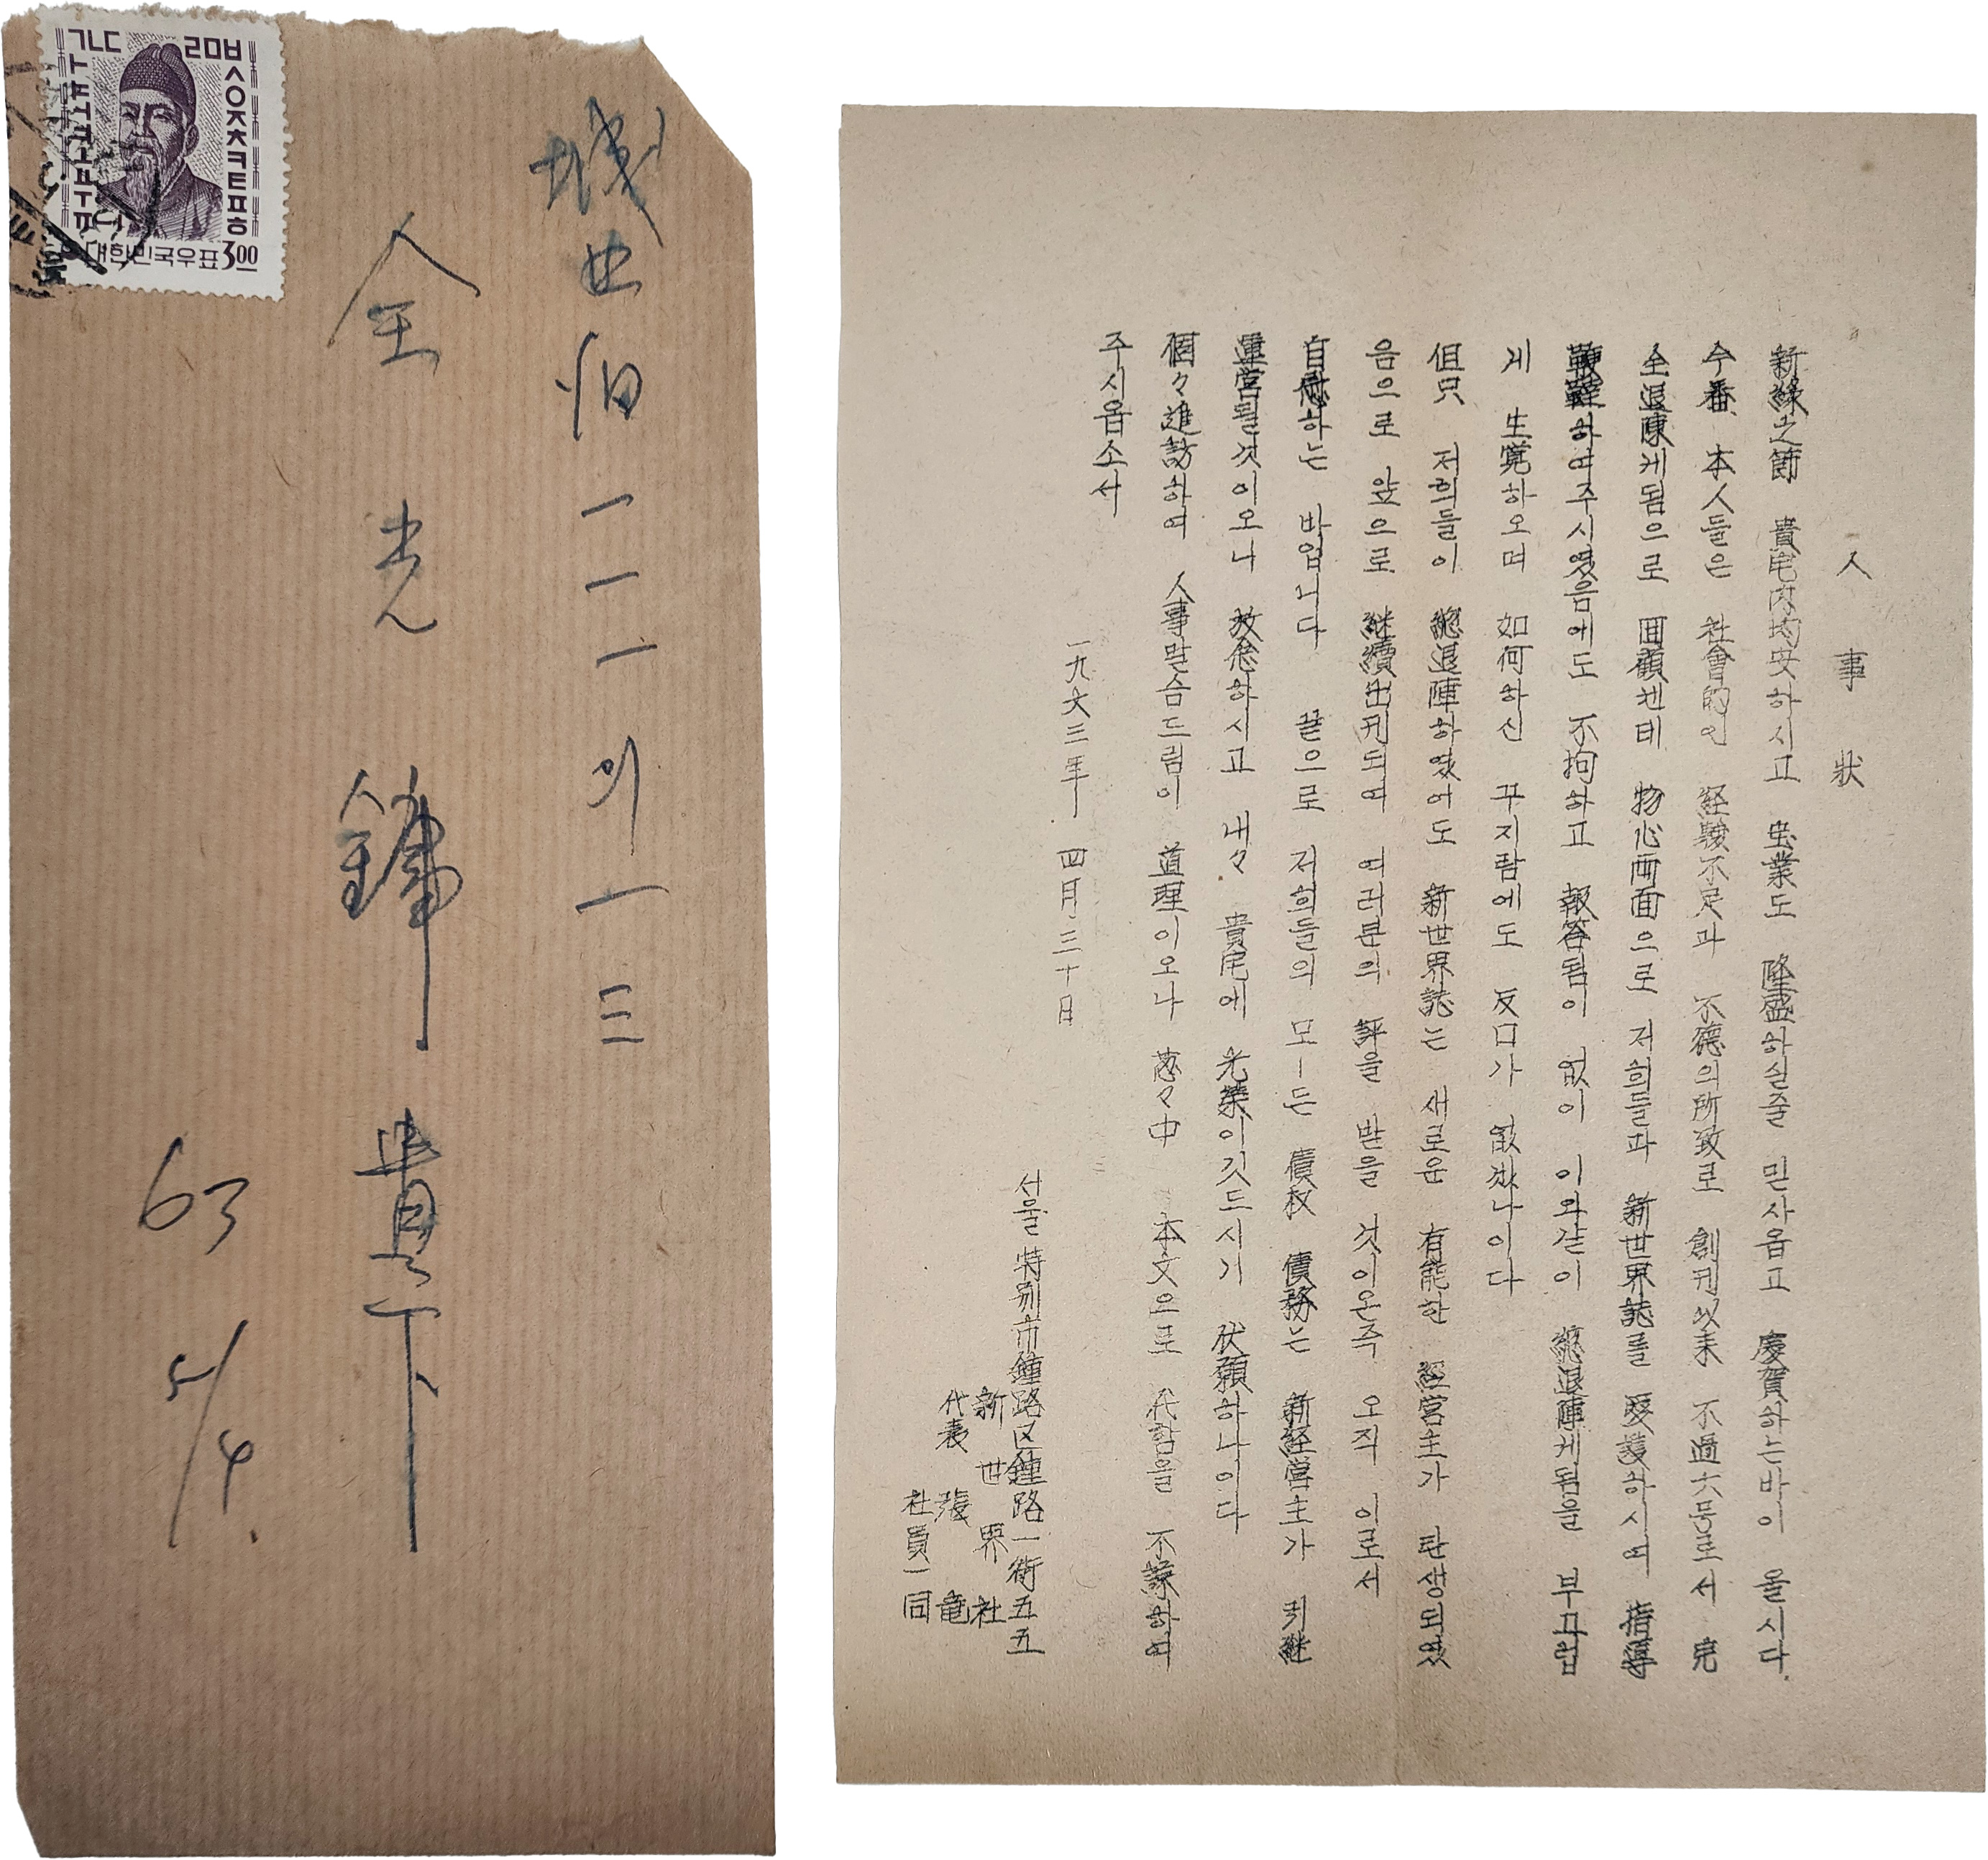 ㄱㄴㄷ ㄹㅁㅂㅅㅇㅈㅊㅋㅌㅍㅎ
ㅏㅑㅓㅕㅗㅛㅜㅠ
대한민국우표 300
城北 一二一의一三
金光鏞 貴下
63
5/4
人事狀
新綠之節 貴宅內均安하시고 業도 隆盛하실줄 믿사옵고 慶賀하는바이 올시다.
今番 本人들은 社會的인 経驗不足과 不德의所致로 創刊以来 不過六号로서 完
全退陳케됨으로 囬顧컨테 物心両面으로 저희들과 新世界誌를 愛護하시여 指導
鞭韃하여주시였음에도 不拘하고 報答됨이 없이 이와같이 総退陣케됨을 부끄럽
게 生覚하오며 如何하신 꾸지람에도 反口가 없겠나이다
但只 저희들이 総退陣하였어도 新世界誌는 새로운 有能한 経営主가 탄생되였
음으로 앞으로 継續出刊되여 여러분의 評을 받을 것이온즉 오직 이로서
自慰하는 바입니다 끝으로 저희들의 모ㅡ든 債权 債務는 新経営主가 引継
運営될것이오니 放念하시고 내々 貴宅에 光榮이깃드시기 伏願하나이다
個々進訪하여 人事말슴드림이 道理이오나 怱々中 本文으로 代함을 不諒하여
주시옵소서
一九六三年 四月三十日
서울特別市鍾路区鍾路一街五五
新世界社
代表 張竜
社員一同